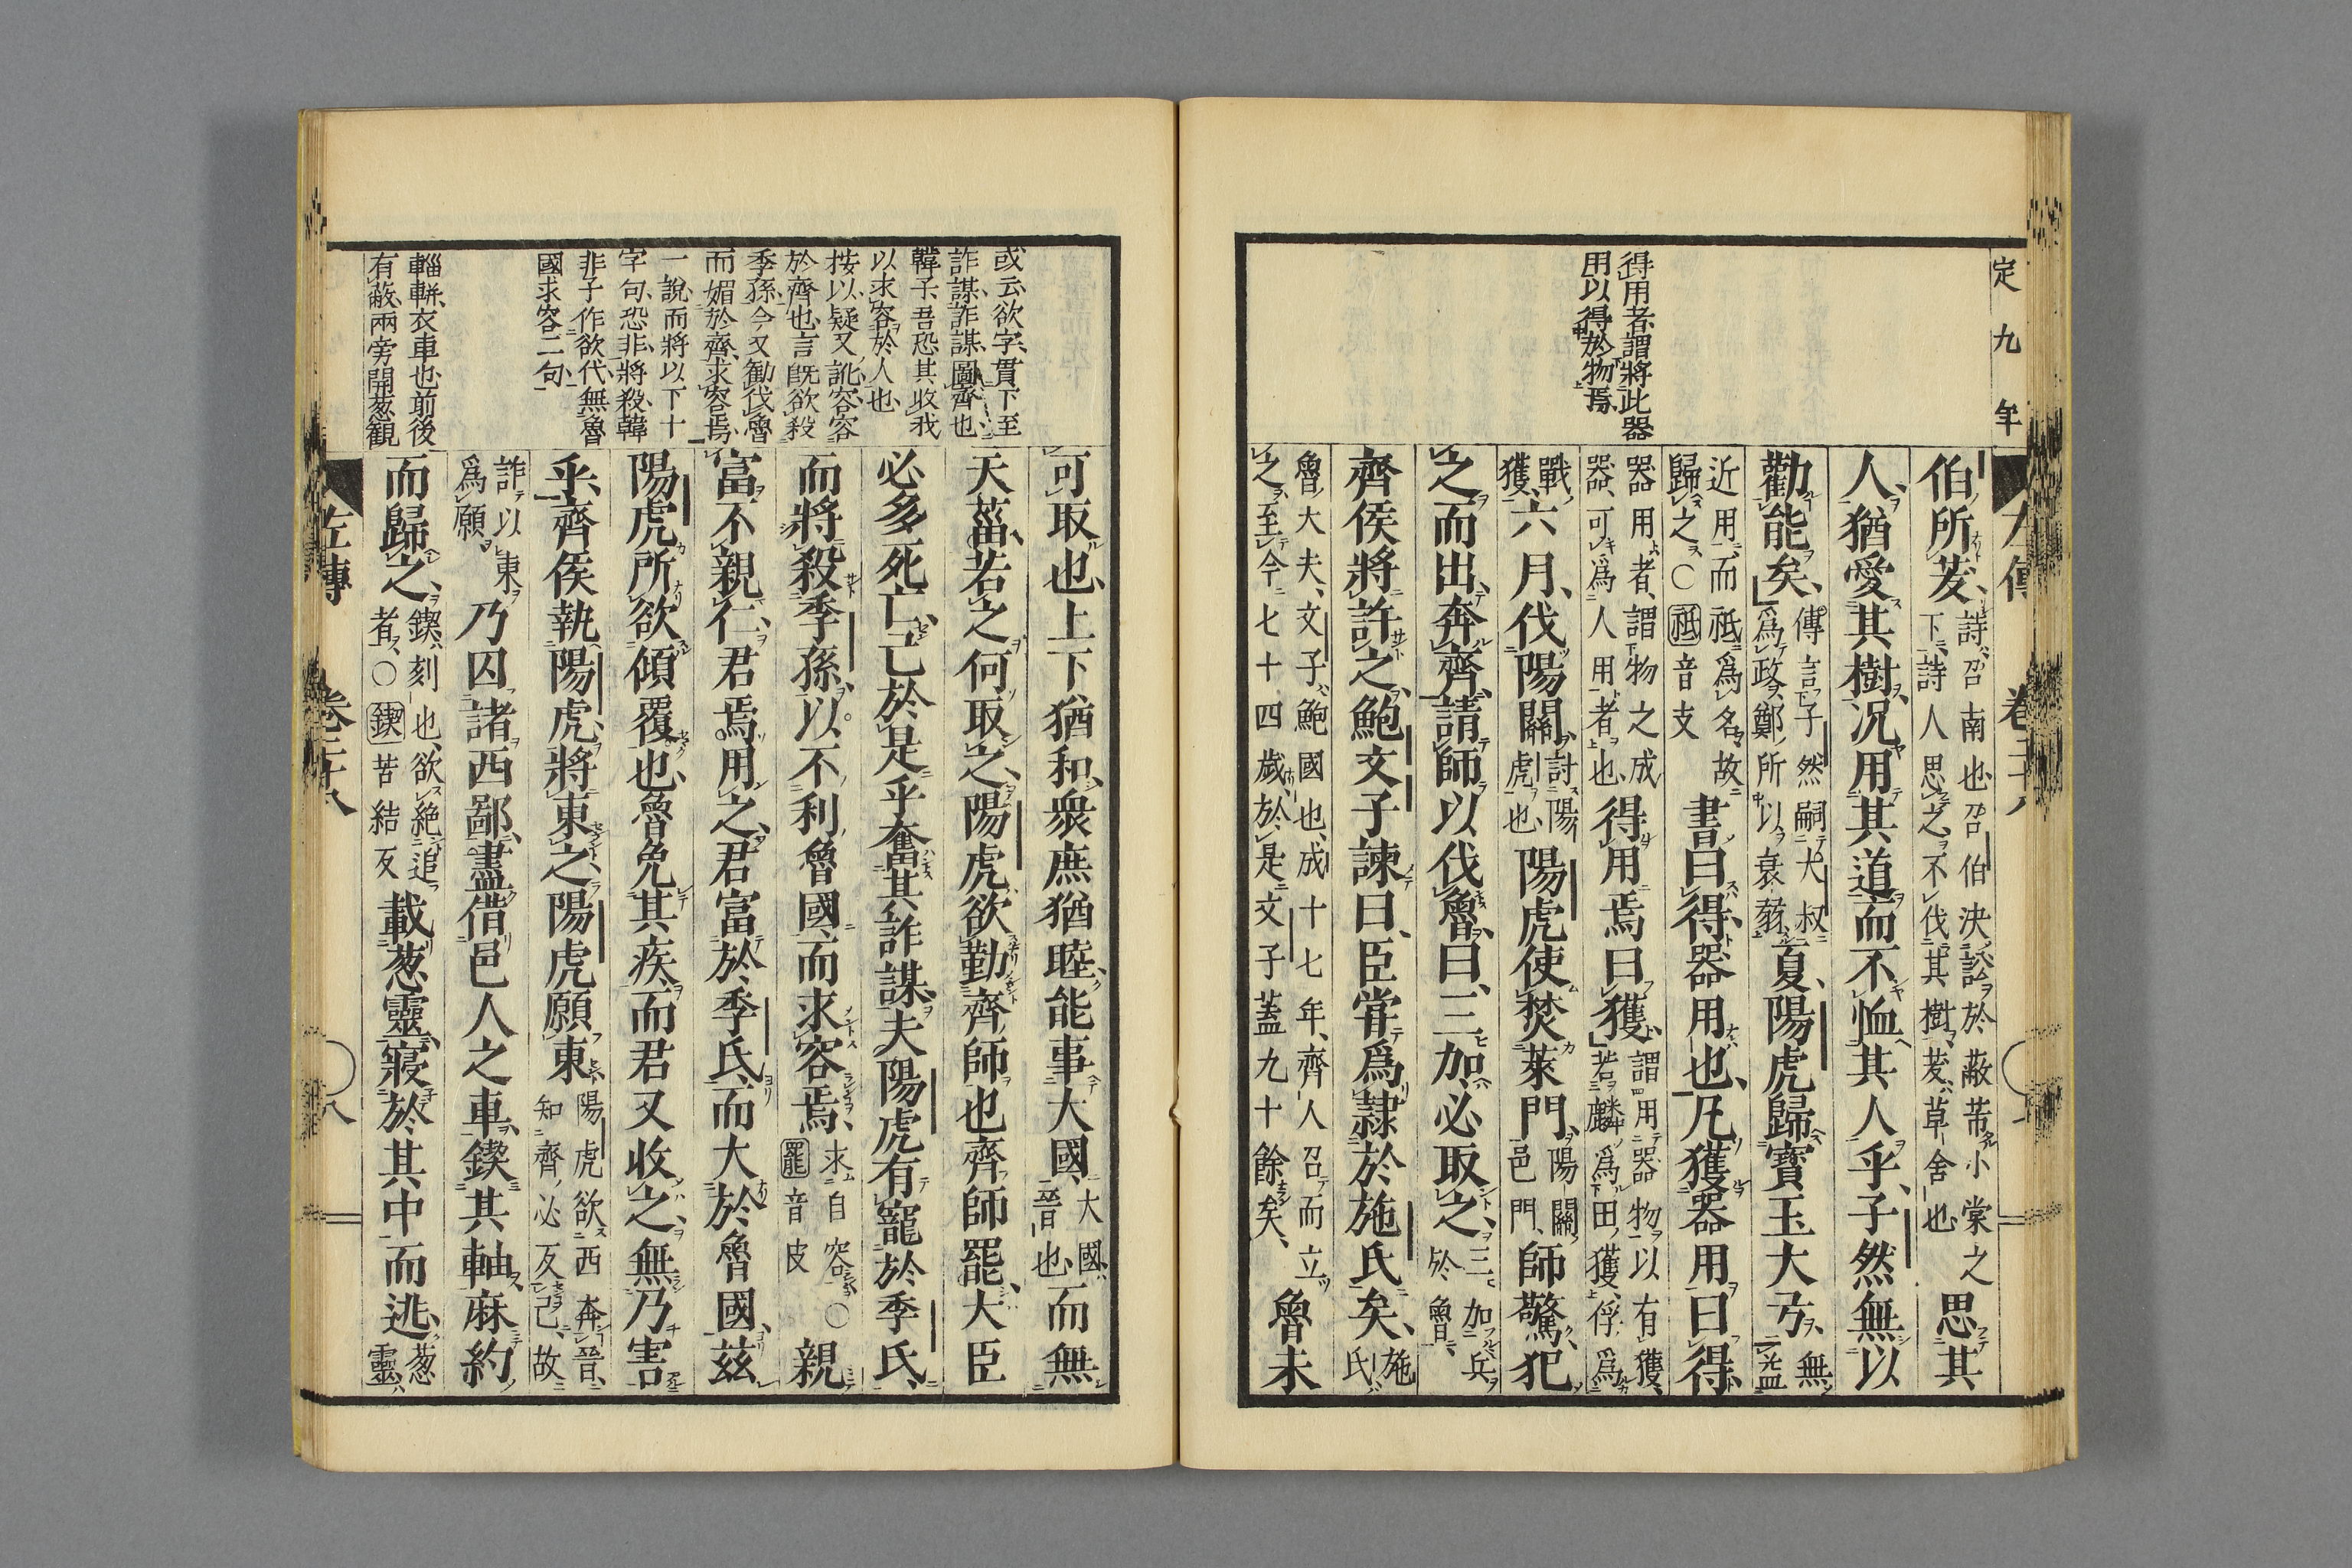 定九年
得用者、謂將此器
用以得於物焉、
伯所茇、詩召南也、召伯決訟於蔽芾小棠之
下、詩人思之、不伐其樹、茇、草舍也、思其
人、猶愛其樹、況用其道、而不恤其人乎、子然無以
勸能矣、傳言子然嗣大叔
爲政、鄭所以衰弱、夏、陽虎歸寶玉大弓、無益
近用、而祗爲名、故
歸之、○祗音支書曰得、器用也、凡獲器用曰得、
器用者、謂物之成
器、可爲人用者也、得用焉曰獲、謂用器物以有獲、
若麟爲田獲、俘爲
戰獲、六月、伐陽關、討陽
虎也、陽虎使焚萊門、陽關
邑門、師驚、犯
之而出、奔齊、請師以伐魯、曰、三加、必取之、三加兵
於魯、
齊侯將許之、鮑文子諫曰、臣嘗爲隷於施氏矣、施
氏、
魯大夫、文子、鮑國也、成十七年、齊人召而立
之、至今七十四歲、於是文子蓋九十餘矣、魯未
可取也、上下猶和、衆庶猶睦、能事大國、大國、
晉也、而無
天菑、若之何取之、陽虎欲勤齊師也、齊師罷、大臣
必多死亡、己於是乎奮其詐謀、夫陽虎有寵於季氏、
而將殺季孫、以不利魯國、而求容焉、求自容、○
罷音皮親
富不親仁、君焉用之、君富於季氏、而大於魯國、茲
陽虎所欲傾覆也、魯免其疾、而君又收之、無乃害
乎、齊侯執陽虎、將東之、陽虎願東、陽虎欲西奔晉、
知齊必反己、故
詐以東
爲願、乃囚諸西鄙、盡借邑人之車、鍥其軸、麻約
而歸之、鍥、刻也、欲絕追
者、○鍥苦結反載葱靈、寢於其中而逃、葱
靈、
或云、欲字、貫下至
詐謀、詐謀、圖齊也、
韓子、吾恐其收我
以求容於人也、
按、以、疑又訛、容、容
於齊也、言既欲殺
季孫、今又勸伐魯
而媚於齊、求容焉、
一說、而將以下十
字句、恐非、將殺、韓
非子作欲代、無魯
國求容二句、
輜軿、衣車也、前後
有蔽、兩旁開葱、觀
左傳 卷二十八
八